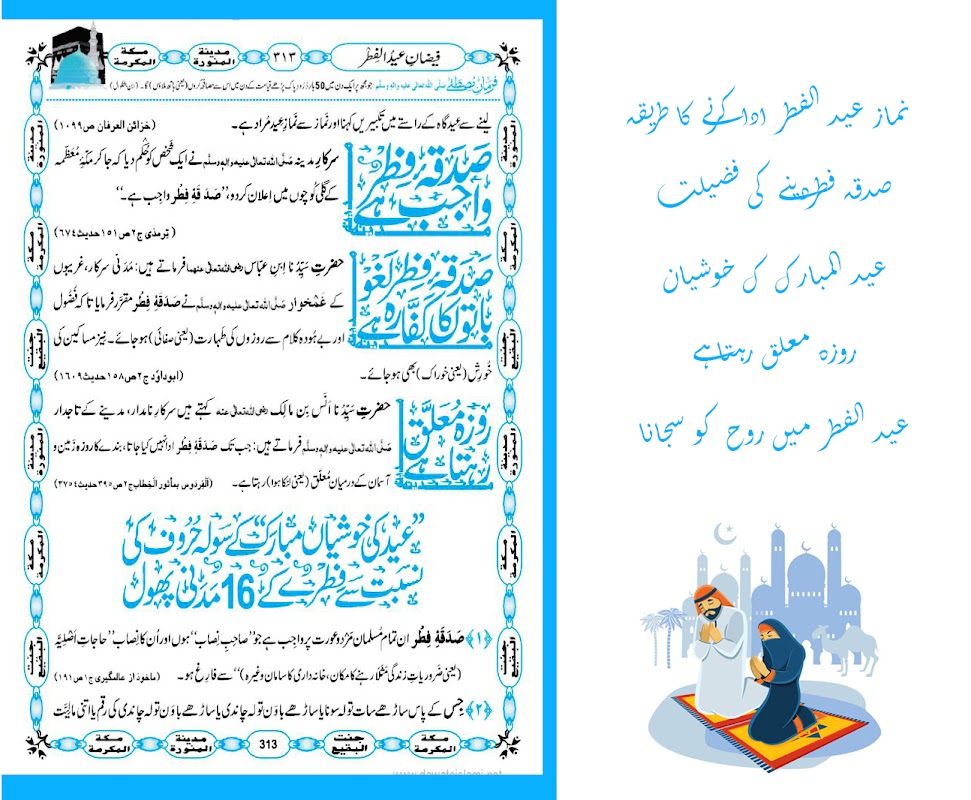 فیضانِ عیدُ الفِطْر
۳۱۳
مدینۃ المنورۃ
مکۃ المکرمۃ
فرمانِ مصطفےٰ صلی اللہ تعالیٰ علیہ والہٖ وسلم: جو مجھ پر ایک دن میں 50 بار دُرُود پاک پڑھے قیامت کے دن میں اس سے مصافحہ کروں (یعنی ہاتھ ملاؤں) گا۔
لینے سے عید گاہ کے راستے میں تکبیریں کہنا اور نماز سے نمازِ عید مراد ہے۔ (خزائن العرفان ص۱۰۹۹)
صَدَقۂ فِطْر واجب ہے
سرکارِ مدینہ صَلَّی اللہ تعالیٰ علیہ واٰلہٖ وسلَّم نے ایک شخص کو حُکْم دیا کہ جا کر مکّۂ مُعَظَّمہ
کے گلی کُوچوں میں اِعلان کر دو، ’’صَدَقۂِ فِطْر واجب ہے۔‘‘
(تِرمذی ج۲ ص۱۵۱ حدیث۶۷۴)
صَدَقۂ فِطْر لَغْو باتوں کا کَفّارہ ہے
حضرتِ سَیِّدُنا اِبنِ عبّاس رضی اللہ تعالیٰ عنہما فرماتے ہیں: مَدَنی سرکار، غریبوں
کے غمخوار صَلَّی اللہ تعالیٰ علیہ واٰلہٖ وسلَّم نے صَدَقۂِ فِطْر مقرَّر فرمایا تاکہ فُضُول
اور بے ہُودہ کلام سے روزوں کی طہارت (یعنی صفائی) ہو جائے۔ نیز مساکین کی
خُورِش (یعنی خوراک) بھی ہو جائے۔ (ابوداؤد ج۲ ص۱۵۸ حدیث۱۶۰۹)
روزہ مُعَلَّق رہتا ہے
حضرتِ سَیِّدُنا اَنَس بن مالِک رضی اللہ تعالیٰ عنہ کہتے ہیں سرکارِ نامدار، مدینے کے تاجدار
صَلَّی اللہ تعالیٰ علیہ واٰلہٖ وسلَّم فرماتے ہیں: جب تک صَدَقۂِ فِطْر ادا نہیں کیا جاتا، بندے کا روزہ زمین و
آسمان کے درمیان مُعلَّق (یعنی لٹکا ہوا) رہتا ہے۔ (اَلفِردوس بمأثور الخطاب ج۲ ص۳۹۵ حدیث۳۷۵۴)
’’عید کی خوشیاں مبارک‘‘ کے سولہ حُرُوف کی
نسبت سے فِطرے کے 16 مَدَنی پھول
﴿۱﴾ صَدَقۂِ فِطْر ان تمام مُسلمان مَرد و عورت پر واجِب ہے جو ’’صاحبِ نِصاب‘‘ ہوں اور اُن کا نِصاب ’’حاجاتِ اَصْلِیَّہ
(یعنی ضَروریاتِ زندَگی مَثَلاً رہنے کا مکان، خانہ داری کا سامان وغیرہ)‘‘ سے فارِغ ہو۔ (ماخوذ از عالمگیری ج۱ ص۱۹۱)
﴿۲﴾ جس کے پاس ساڑھے سات تولہ سونا یا ساڑھے باوَن تولہ چاندی یا ساڑھے باوَن تولہ چاندی کی رقم یا اتنی مالِیَّت
مکۃ المکرمۃ
جنت البقیع
313
مدینۃ المنورۃ
مکۃ المکرمۃ
www.dawateislami.net
نماز عید الفطر ادا کرنے کا طریقہ
صدقہ فطر دینے کی فضیلت
عید المبارک کی خوشیاں
روزہ معلق رہتا ہے
عید الفطر میں روح کو سجانا